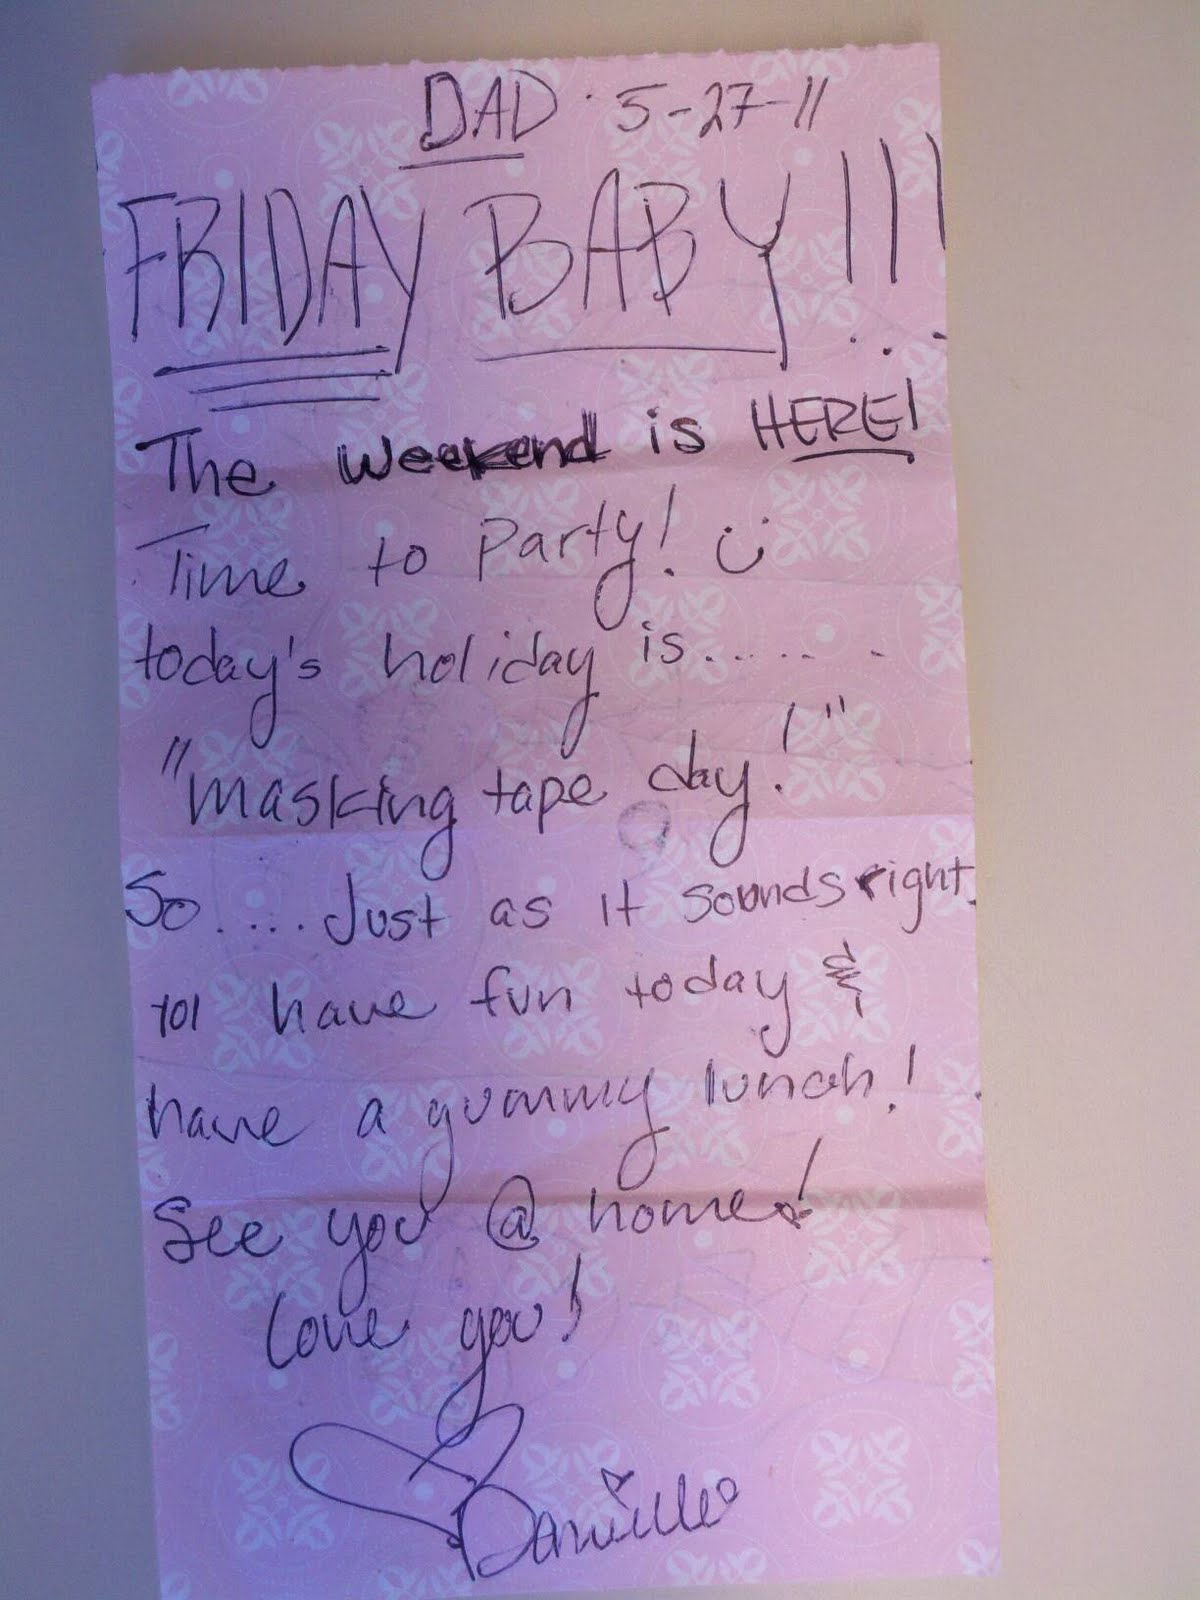 DAD 5-27-11
FRIDAY BABY!!!
The weekend is HERE!
Time to party! :)
today's holiday is......
"masking tape day!"
So.... Just as it sounds right
to! have fun today &
have a yummy lunch!
See you @ home!
Love you!
Danielle